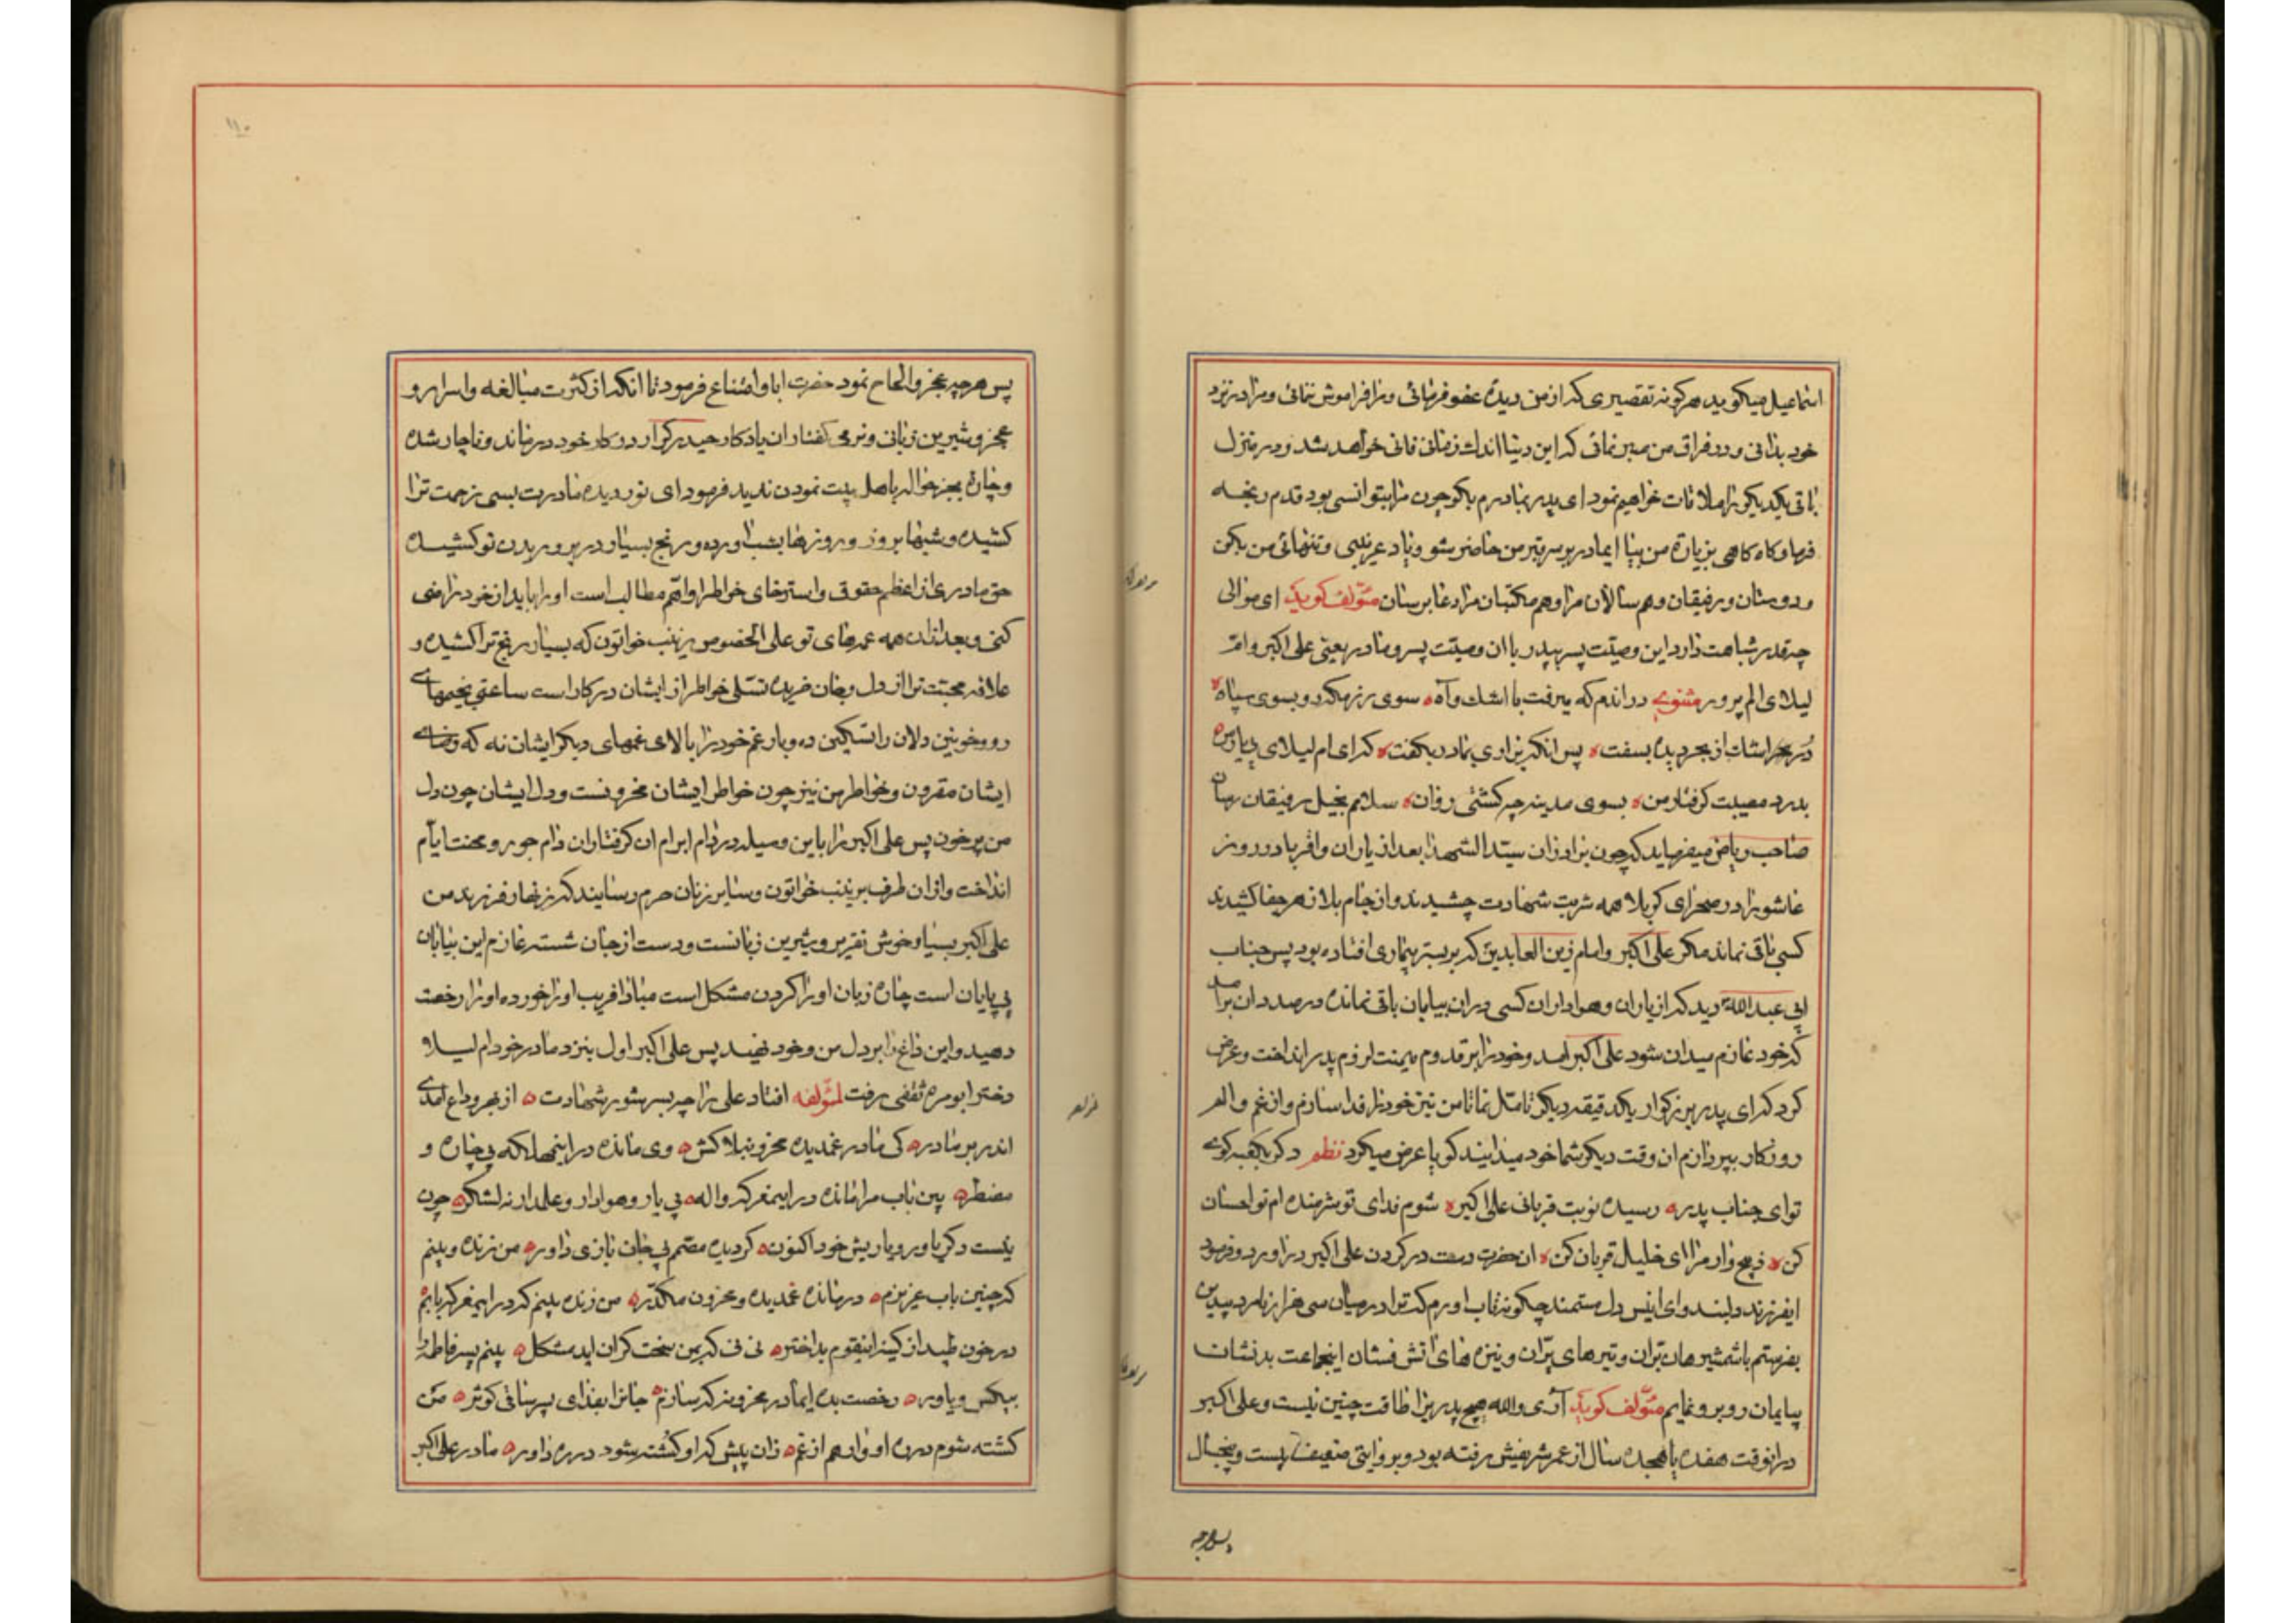 اسماعیل میکوید هرکونه تقصیری که از من دیدهٔ عفو فرمائی و مرا فراموش ننمائی و مرا در نزد
خود بدانی و در فراق من صبر نمائی که این دنیا اندک زمانی فانی خواهد شد و در منزل
باقی یکدیکر را ملاقات خواهیم نمود ای پدر بمادرم بکو چون مرا بتو انسی بود قدم رنجه
فرما و کاه کاهی بزیارة من بیا ایمادر بر سر قبر من حاضر شو و یاد غریبی و تنهائی من بکن
و دوستان و رفیقان و هم سالان مرا و هم مکتبان مرا دعا برسان مؤلف کوید ای موالی
چه قدر شباهت دارد این وصیت پسر بپدر با ان وصیت پسر و مادر یعنی علی اکبر و ام
لیلای الم پرور مثنوی در اندم که میرفت با اشک و آه سوی رزمکه رو بسوی سپاه
دُر اشک از بحر دیده بسفت پس انکه بزاری بمادر بکفت که ای ام لیلای
بدرد مصیبت کرفتار من بسوی مدینه چه کشتی روان سلامم بخیل رفیقان رسان
صاحب ریاض میفرماید که چون برادران سید الشهدا بعد از یاران و اقربا در روز
عاشورا در صحرای کربلا همه شربت شهادت چشیدند و از جام بلا زهر جفا کشیدند
کسی باقی نماند مکر علی اکبر و امام زین العابدین که بر بستر بیماری افتاده بود پس جناب
ابی عبدالله دید که از یاران و هواداران کسی دران بیابان باقی نمانده درصدد ان برآمد
که خود عازم میدان شود علی اکبر آمد و خود را بر قدوم میمنت لزوم پدر انداخت و عرض
کرد که ای پدر بزرکوار یکدقیقه دیکر تامل نما تا من نیز خود را فدا سازم و از غم و الم
روزکار بپردازم ان وقت دیکر شما خود میدانید کویا عرض میکرد نظم دکر بکعبه کوی
تو ای جناب پدر رسیده نوبت قربانی علی اکبر شوم فدای تو شرمنده ام تو احسان
کن ذبیح وار مرا ای خلیل قربان کن ان حضرت دست در کردن علی اکبر دراورد و فرمود
ایفرزند دلبند و ای انیس دل مستمند چکونه تاب اورم که ترا در میان سی هزار نامرد بیدین
بفرستم با شمشیرهای برّان و تیرهای پرّان و نیزه های اتش فشان اینجماعت بد نشات
بیایمان روبرو نمایم مؤلف کوید آری والله هیچ پدر را طاقت چنین نیست و علی اکبر
درانوقت هفده یا هجده سال از عمر شریفش رفته بود و بروایتی ضعیف بیست و پنجسال
پس هرچه
پس هرچه عجز و الحاح نمود حضرت ابا و امتناع فرمود تا انکه از کثرت مبالغه و اسرار و
عجز و شیرین زبانی و نرمی کفتار ان یادکار حیدر کرّار در کار خود درماند و ناچار شده
و چارهٔ بجز حواله باهل بیت نمودن ندید فرمود ای نور دیده مادرت بسی زحمت ترا
کشیده و شبها بروز و روزها بشب اورده و رنج بسیار در پروریدن تو کشیده
حق مادری از اعظم حقوق و استرضای خواطر او اهم مطالب است او را باید از خود راضی
کنی و بعد از ان همه عمه های تو علی الخصوص زینب خواتون که بسیار رنج ترا کشیده و
علاقه محبتت ترا از دل و جان خریده تسلی خواطر از ایشان در کار است ساعتی بخیمهای
رو و خونین دلان را تسکین ده و بار غم خود را بالای غمهای دیکر ایشان نه که رضای
ایشان مقرون و خواطر من نیز چون خواطر ایشان محزونست و دل ایشان چون دل
من پر خون پس علی اکبر را باین وسیله در دام ابرام ان کرفتاران دام جور و محنت ایام
انداخت و از ان طرف بزینب خواتون و سایر زنان حرم رسانید که زنهار فرزند من
علی اکبر بسیار خوش تقریر و شیرین زبانست و دست از جان شسته عازم این بیابان
بی پایان است چارهٔ زبان او را کردن مشکل است مبادا فریب او را خورده او را رخصت
دهید و این داغ را بر دل من و خود نهید پس علی اکبر اول بنزد مادر خود ام لیلا
دختر ابو مره ثقفی رفت لمؤلفه افتاد علی را چه بسر شور شهادت از بهر وداع آمدی
اندر بر مادر کی مادر غمدیده محزون بلاکش وی مانده در اینمهلکه بیچاره و
مضطر بین باب مرا مانده در اینمعرکه واله بی یار و هوادار و علمدار نه لشکر چون
نیست دکر یاور و یاریش خود اکنون کردیده مصمم پی جان بازی داور من زنده و بینم
که چنین باب عزیزم درمانده غمدیده و محزون مکدر من زنده بینم که در اینمعرکه بابم
در خون طپد از کینه اینقوم بداختر نی نی که بمن سخت کران اید مشکل بینم پسر فاطمه را
بیکس و یاور رخصت بده ایمادر محزونه که سازم جانرا بفدای پسر ساقی کوثر من
کشته شوم در ره او وارهم از غم زان پیش که او کُشته شود در ره داور مادر علی اکبر